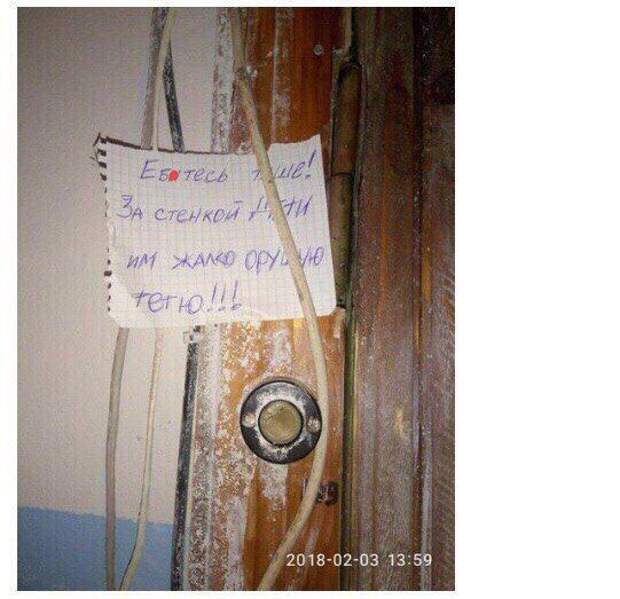 Еб тесь т ше!
За стенкой дети
им жалко орущую
тётю!!!
2018-02-03 13:59